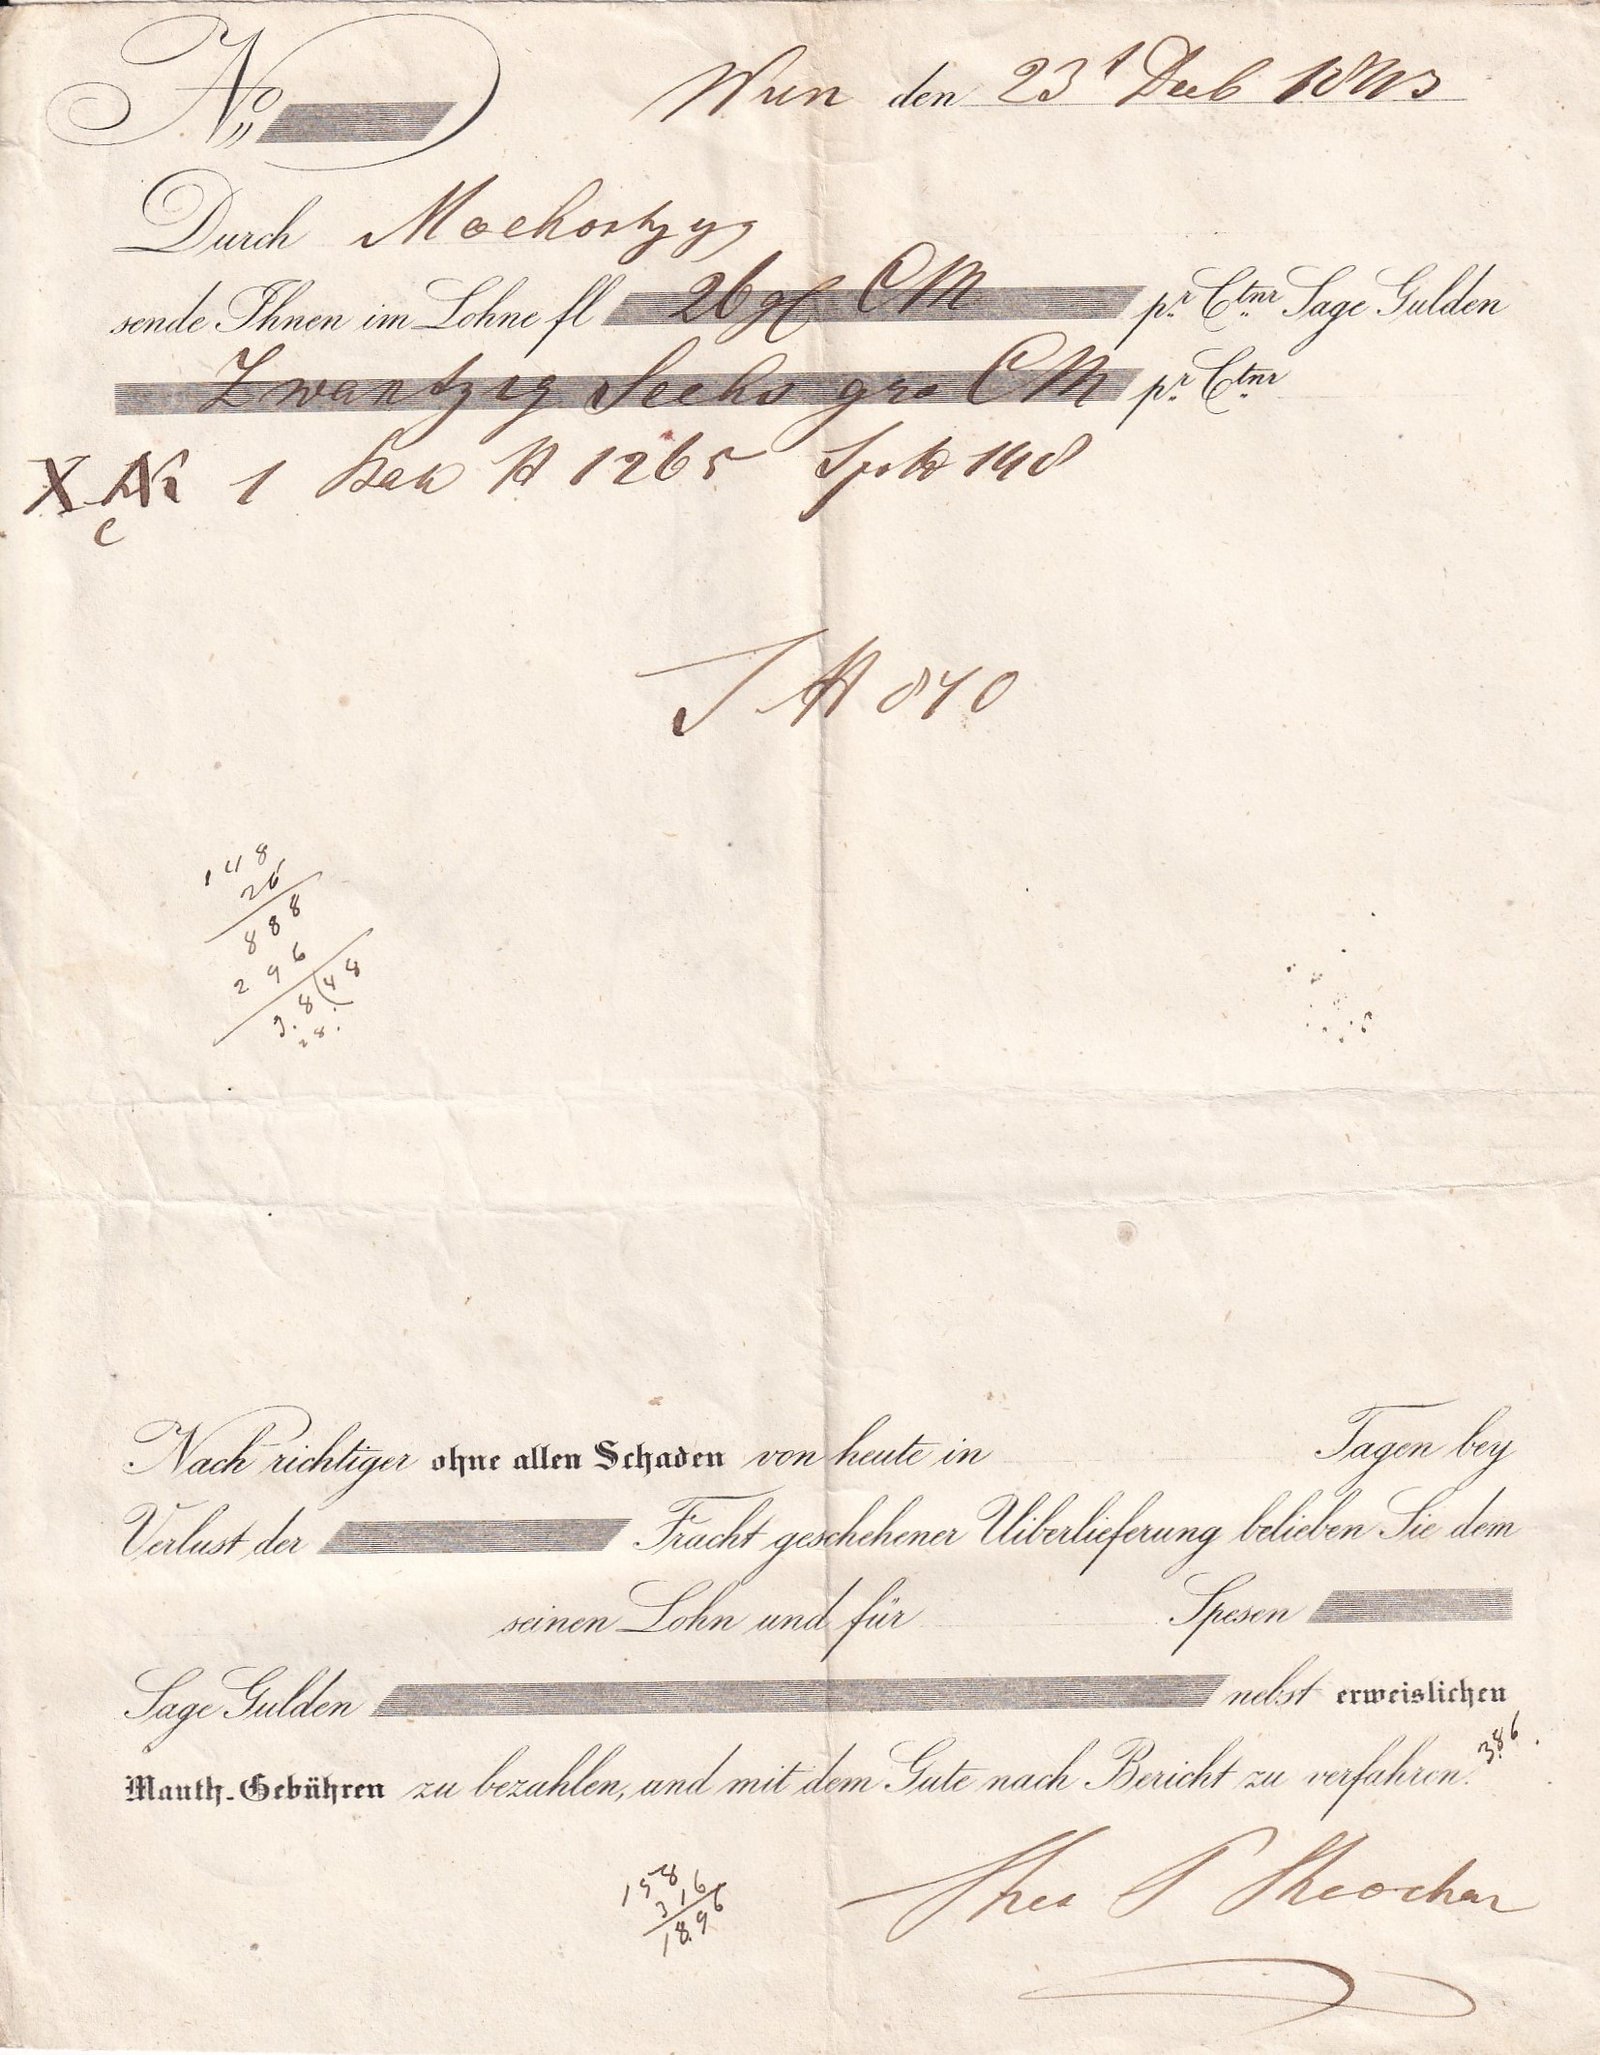 No
Wien den 23t Decb 1843
Durch
sende Ihnen im Lohne fl 26 CM pr. Ctnr Sage Gulden
Zwantzig Sechs CM pr. Ctnr
X Nr 1 1265 148
C
840
148
26
888
296
3.8(48
28.
Nach richtiger ohne allen Schaden von heute in Tagen bey
Verlust der Fracht geschehener Uiberlieferung belieben Sie dem
seinen Lohn und für Spesen
Sage Gulden nebst erweislichen
Mauth-Gebühren zu bezahlen, und mit dem Gute nach Bericht zu verfahren.
386
158
316
1896